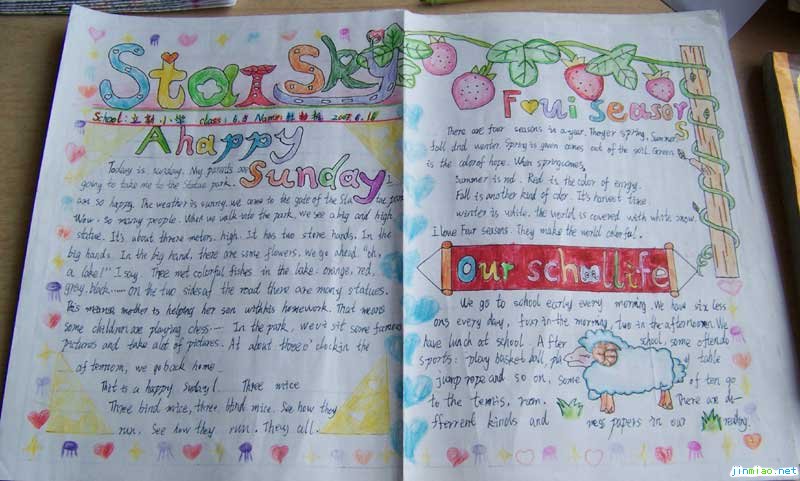 Star Sky
School: 小学 class: 6.8 Name: 2007.6.18
A happy
Sunday
Today is sunday. My parents are
going to take me to the Statue park. I
am so happy. The weather is sunny. we come to the gate of the Sta tue park
Wow. so many people. When we walk into the park, we see a big and high
statue. It's about threne meters. high. It has two stone hands. In the
big hands. In the big hand, there are some flowers. we go ahead. "oh,
a lake!" I say. Thee met colorful fishes in the lake. orange, red,
grey. black...... On the two sides of the road there are many statues.
This means mother is helping her son with his homework. That means
some children are playing chess...... In the park, we visit some famous
pictures and take alot of pictures. At about three o' clock in the
afternoon, we go back home
That is a happy sunday! Three mice
Three blind mice, three blind mice. See how they
run. See how they run. They all.
Foui seasons
There are four seasons in a year. They er spring, Summer
fall and winter. Spring is green comes out of the soil. Greens
is the color of hope. When spring comes,
Summer is red. Red is the color of energy.
Fall is another kind of color. It's harvest time.
winter is white. the world is covered with white snow.
I love Four seasons. They make the world colorful.
Our schoollife
We go to school early every morning. We have six less
ons every day, four in the morning, Two in the afternoon. We
have lunch at school. After school, some often do
sports: play basket ball, play table
jump rope and so on, some of ten go
to the tennis, room. There are di-
fferrent kinds and news papers in our reading.
jinmiao.net